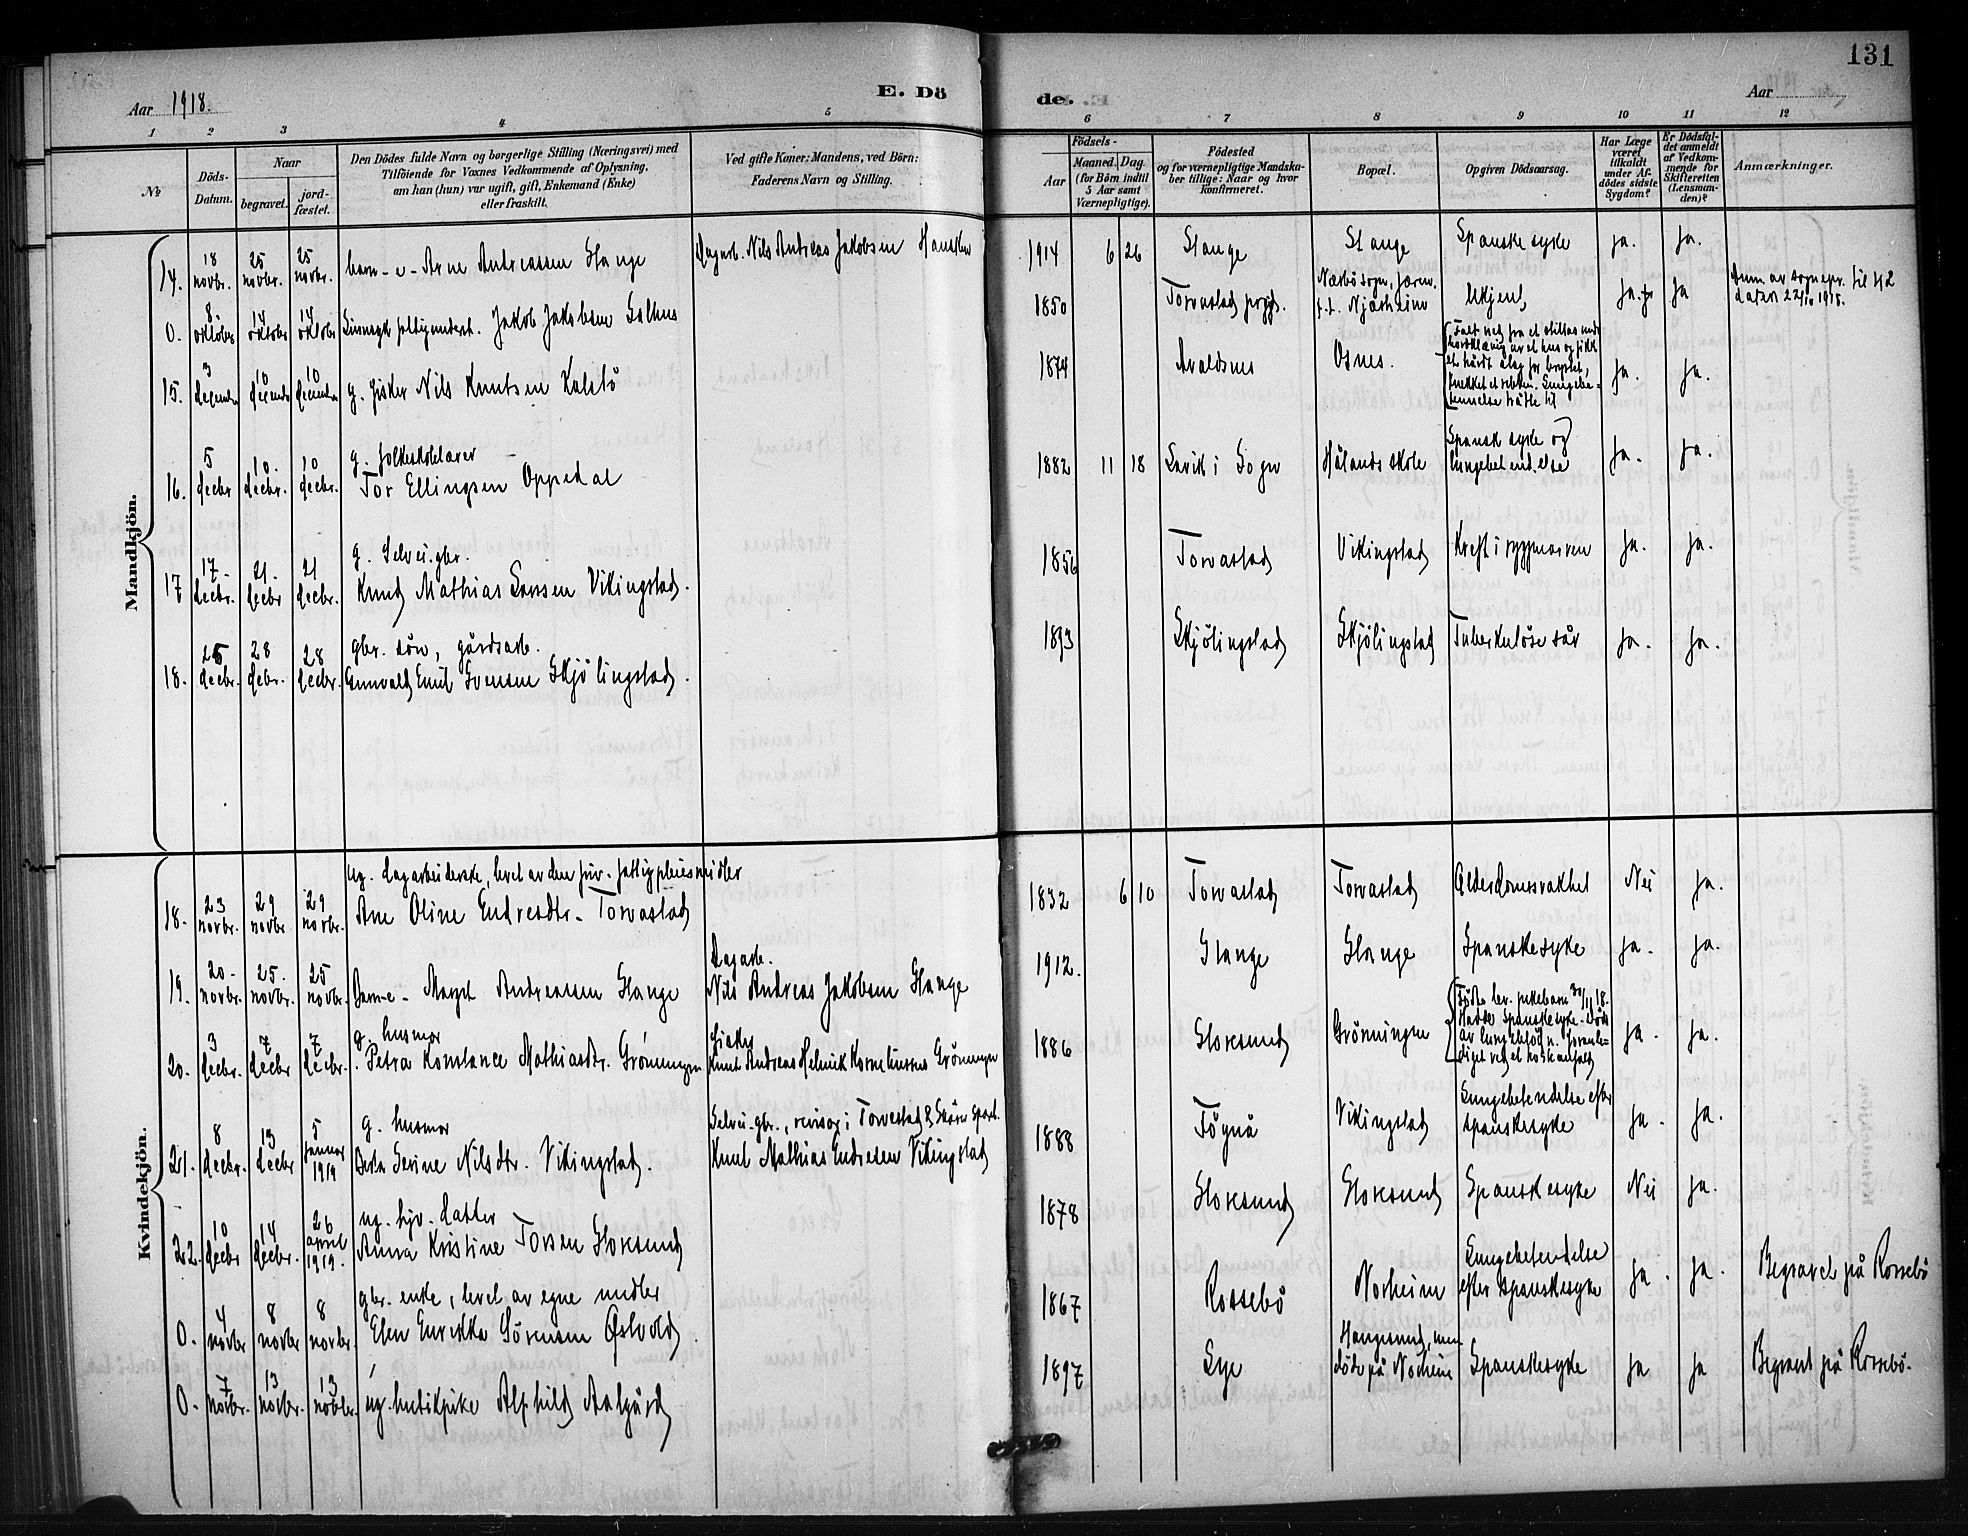 131
Aar 1918.
E. Dö
de.
Aar
1 2 3 4 5 6 7 8 9 10 11 12
№
Döds-
Datum.
Naar
begravet.
jord-
fæstet.
Den Dödes fulde Navn og borgerlige Stilling (Næringsvei) med
Tilföiende for Voxnes Vedkommende af Oplysning,
om han (hun) var ugift, gift, Enkemand (Enke)
eller fraskilt.
Ved gifte Koner: Mandens, ved Börn:
Faderens Navn og Stilling.
Födsels-
Aar
Maaned. Dag.
(for Börn indtil
5 Aar samt
Værnepligtige).
Födested
og for værnepligtige Mandska-
ber tillige: Naar og hvor
Konfirmeret.
Bopæl.
Opgiven Dödsaarsag.
Har Læge
været
tilkaldt
under Af-
dödes sidste
Sygdom?
Er Dödsfal-
det anmeldt
af Vedkom-
mende for
Skifteretten
(Lensman-
den)?
Anmærkninger.
Mandkjön.
14. 18 novbr. 25 novbr. 25 novbr. barn-e- Arne Andreassen Stange Dagarb. Nils Andreas Jakobsen 1914 6 26 Stange Stange Spanske syke ja. ja.
0. 8 oktober 14 oktober 14 oktober Sinnsyk fattigunderst. Jakob Jakobsen 1850 Torvastad prgj. Nærbö sogn, Jæren. f.t. Njærheim Ukjent ja. ja
15. 3 desember 10 desember 10 desember g. fisker Nils Knutsen Kalstö 1874 Avaldsnes Osnes.
Falt ned fra et stillas under
bordklæning av et hus og fikk
et hårdt slag for brystet,
knekket et ribben. Lungebe-
tennelse
ja. ja.
16. 5 decbr 10. decbr. 10 decbr. g. folkeskolelærer
Tor Ellingsen Oppedal 1882 11 18 Lavik i Sogn Hålands skole Spansk syke og
lungebetendelse ja. ja.
17 17. decbr. 21. decbr 21 decbr. g. Selvei. gbr.
Knud Mathias Larsen Vikingstad. 1856 Torvastad Vikingstad Kreft i ryggmarven ja. ja.
18. 25 decbr. 28 decbr. 28 decbr. gbr. sön, gårdsarb.
Gunvald Emil Svensen Skjölingstad. 1893 Skjölingstad Skjölingstad Tuberkulöse sår ja. ja.
Kvindekjön.
18. 23 novbr. 29 novbr 29 novbr. ug. dagarbeiderske, levet av den
Ane Oline Endresdtr. Torvastad 1832 6 10 Torvastad Torvastad Alderdomssvakhet Nei ja.
19. 20. novbr. 25. novbr. 25 novbr. Barn-e- Margit Andreassen Stange Dagarb.
Nils Andreas Jakobsen Stange 1912. Stange Stange Spanskesyke ja. ja.
20. 3 decbr. 7 decbr 7 decbr. g. husmor
Petra Konstance Mathiasdtr. Grönningen Fisker
Knut Andreas Helmik Korneliussen Grönningen 1886 Storesund Grönningen
Födte lev. pikebarn 30/11 18.
Hadde Spanskesyke. Döde
av
ja. ja.
21. 8 decbr. 13 decbr 5 januar 1919 g. husmor
Berta Serine Nilsdtr. Vikingstad. Selvei-gbr., revisor i Torvestad & Skåre sparb.
Knut Mathias Endresen Vikingstad 1888 Föynå Vikingstad Lungebetendelse efter
spanskesyke ja. ja.
22. 10 decbr 14 decbr. 26 april 1919. ug. hjv. datter
Anna Kristine Torsen Storesund 1878 Storesund Storesund Spanskesyke Nei ja.
0. 4 novbr 8 novbr 8 novbr. gbr. enke, levet av egne midler
Elen Enrikka Sörensen Östvold 1867 Rossebö Norheim Lungebetendelse
efter spanskesyke ja. ja. Begravet på Rossebö
0. 7 novbr. 13 novbr. 13 novbr. ug. butikpike Alfhild Aalgård 1897 Lye Haugesund, men
döde på Norheim Spanskesyke ja ja Begravet på Rossebö.